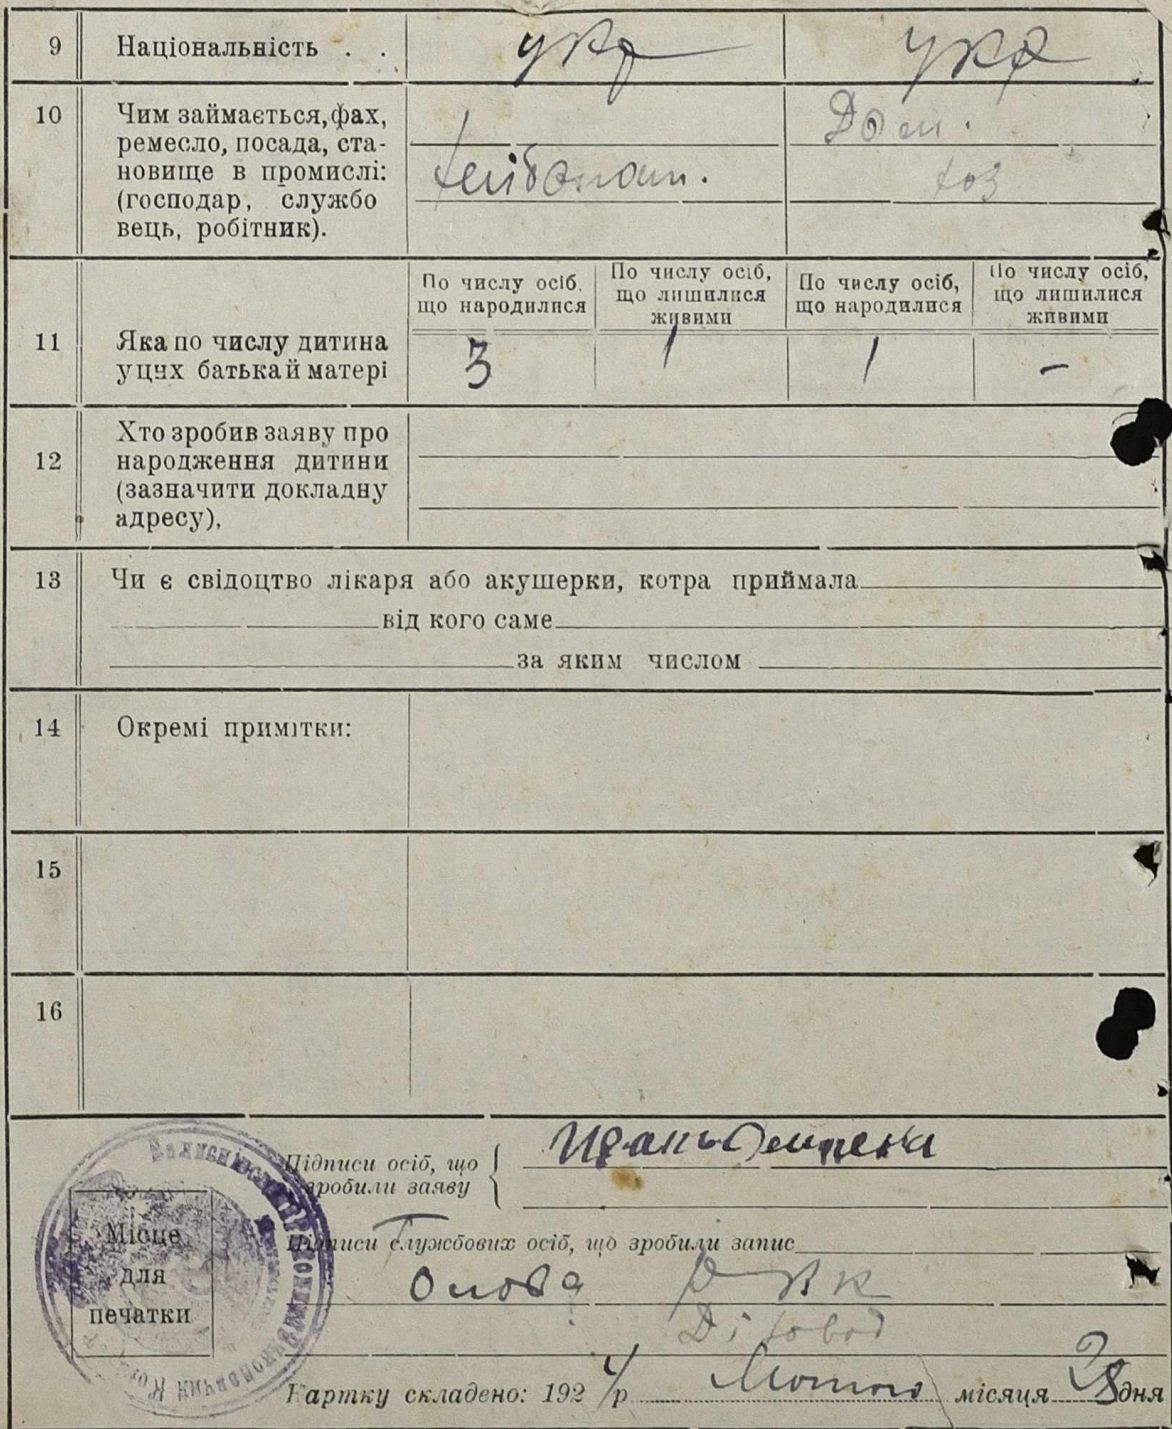 9 Національність . . укр укр
10 Чим займається, фах,
ремесло, посада, ста-
новище в промислі:
(господар, службо
вець, робітник).
Дом.
хлібопаш.
хоз
По числу осіб, що народилися
По числу осіб, що лишилися живими
По числу осіб, що народилися
По числу осіб, що лишилися живими
11 Яка по числу дитина
у цих батька й матері
3 1 1 –
12 Хто зробив заяву про
народження дитини
(зазначити докладну
адресу),
13 Чи є свідоцтво лікаря або акушерки, котра приймала
від кого саме
за яким числом
14 Окремі примітки:
15
16
Підписи осіб, що
зробили заяву
Місце
для
печатки
Підписи службових осіб, що зробили запис
Голова
Діловод
Картку складено: 1924р. Лютого місяця 28 дня